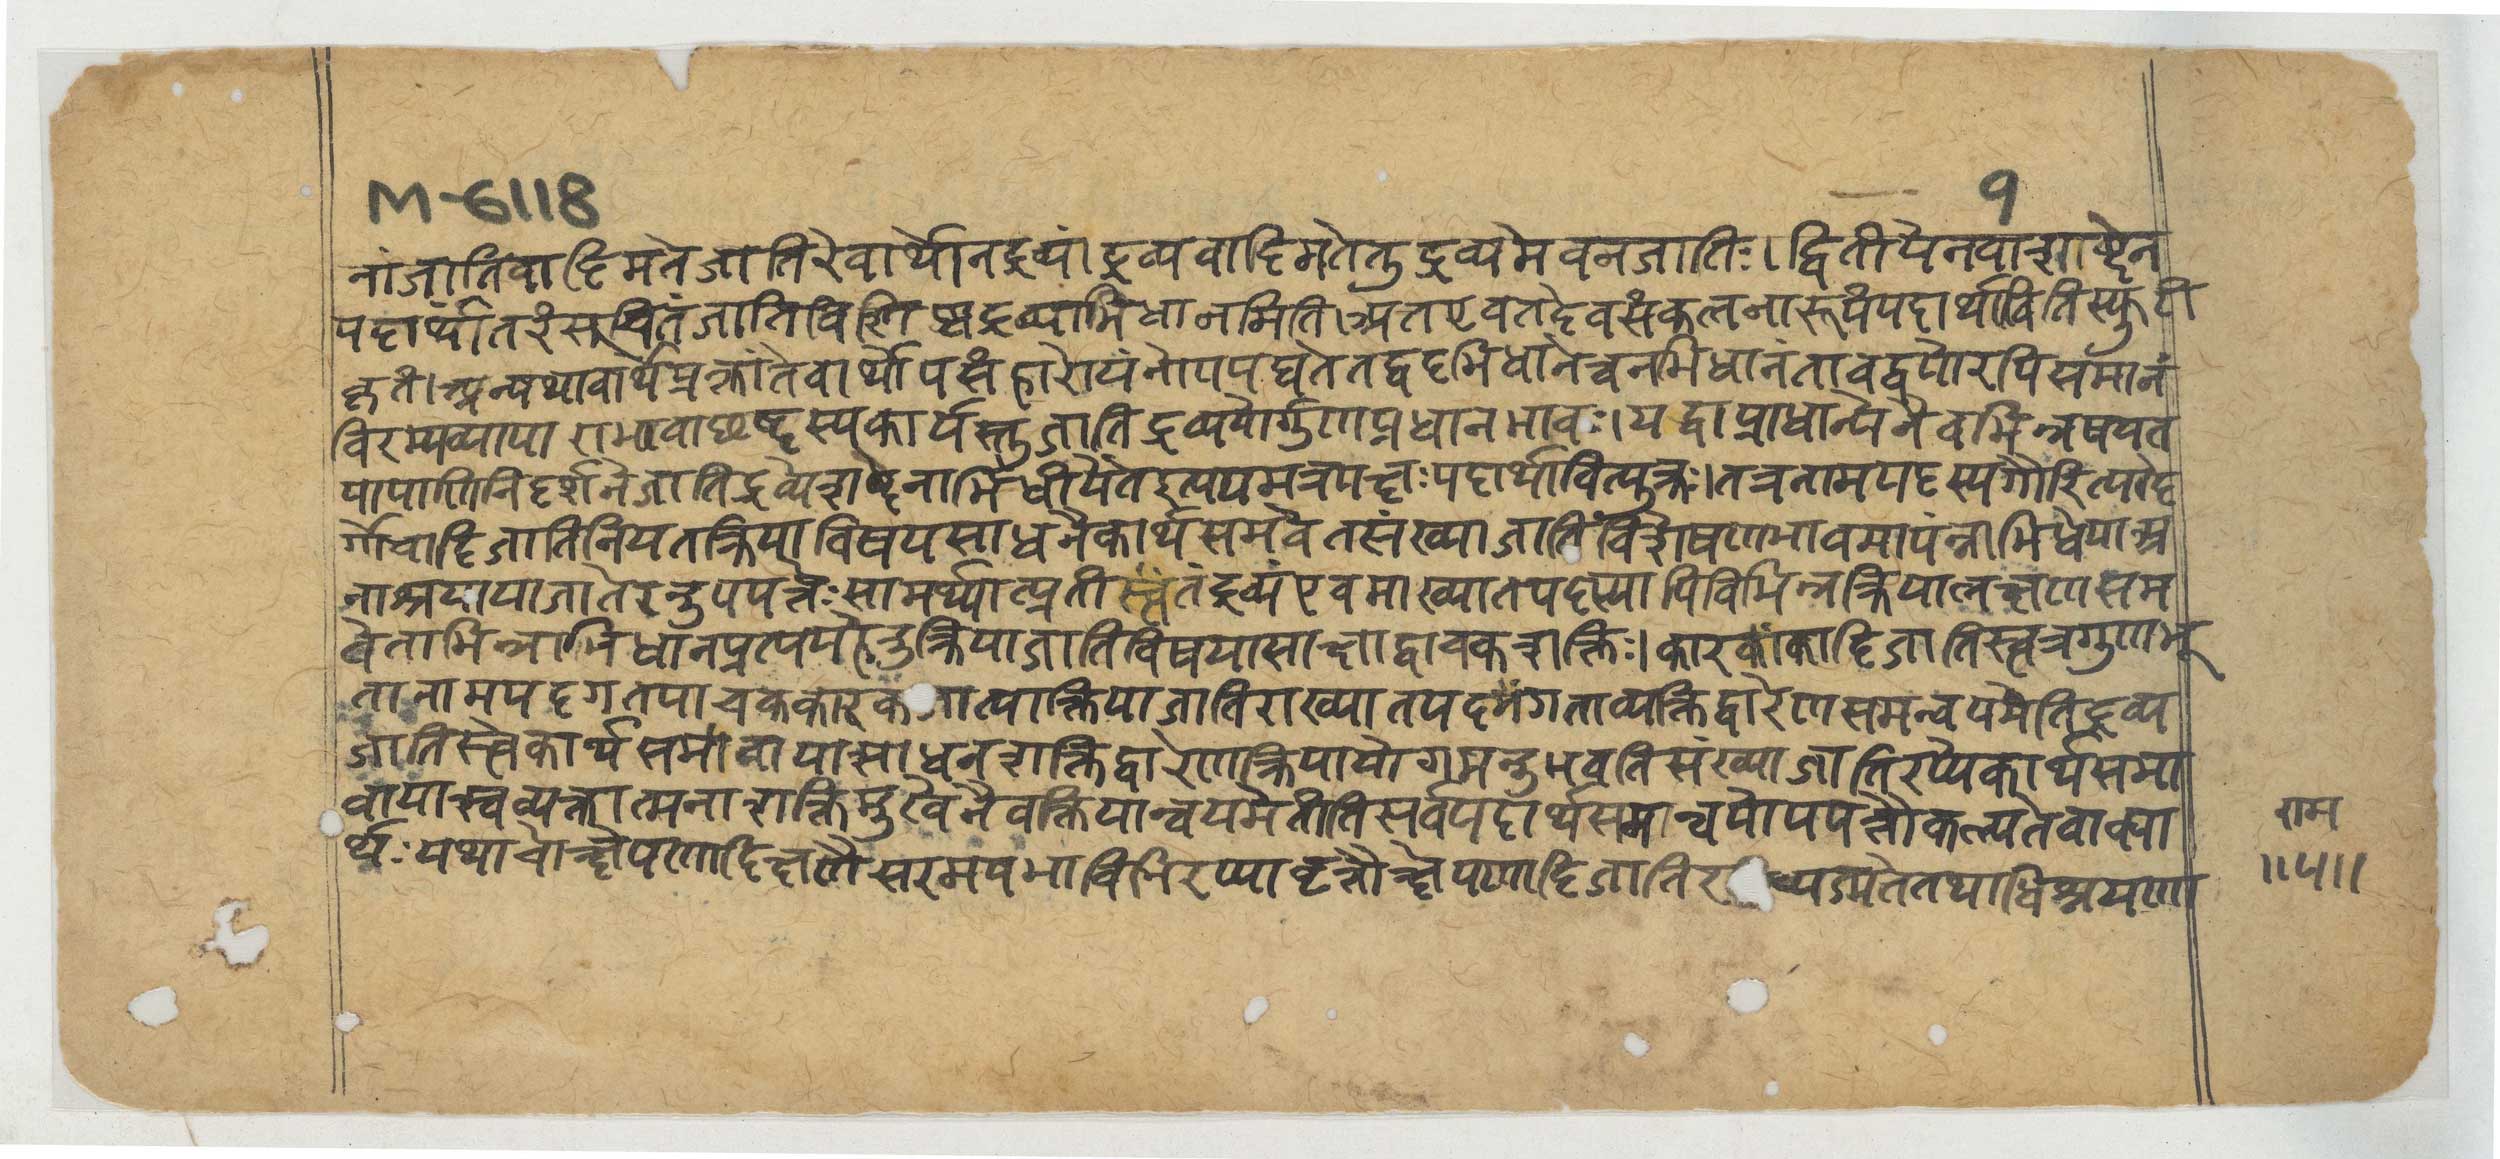 M-6118
१
नांजातिवादिमतेजातिरेवार्थोनद्रव्यं।द्रव्यवादिमतेतुद्रव्यमेवनजातिः।द्वितीयेनवाशब्देन
पदार्थांतरंसूचितंजातिविशिष्टद्रव्याभिधानमिति।अतएवतदेवसंकलनारूपंपदार्थावितिस्फुटी
कृतं।अन्यथावार्थप्रक्रांतेवार्थोपसंहारोयंनोपपद्यतेतद्वदभिधानेत्वनभिधानंतावद्वयोरपिसमानं
विरम्यव्यापाराभावाछब्दस्यकार्यस्तुजातिद्रव्ययोर्गुणप्रधानभावः।यद्वाप्राधान्येनैवभिन्नषयत
यापाणिनिदर्शनेजातिद्रव्येशब्देनाभिधीयेतइत्ययमत्रपक्षःपदार्थावित्युक्तः।तत्रनामपदस्यगौरित्यादे
र्गोत्वादिजातिनियतक्रियाविषयसाधनैकार्थसमवेतसंख्याजातिविशेषणभावमापंन्नाभिधेयाअ
नाश्रयायाजातेरनुपपत्तेःसामर्थ्यात्प्रतीतंद्रव्यंएवमाख्यातपदस्यापिविभिन्नक्रियालक्षणसम
वेताभिन्नाभिधानप्रत्ययहेतुक्रियाजातिविषयासाक्षाद्वाचकशक्तिः।कारकांकादिजातिस्त्वत्रगुणभू
तानामपदगतपाचककारकजात्याक्रियाजातिराख्यातपदमंगताव्यक्तिद्वारेणसमन्वयमेतिद्रव्य
जातिस्त्वेकार्थसमावायात्साधनशक्तिद्वारेणक्रियायोगमनुभवतिसंख्याजातिरप्येकार्थसमा
वायात्स्वव्यक्तात्मनाशक्तिमुखेनैवक्रियान्वयमेतीतिसर्वपदार्थसमान्वयोपपत्तौकल्पतेवाक्या
र्थःयथाचोत्क्षेपणादिक्षणैसरमषभाविभिरप्यावृत्तौत्क्षेपणादिजातिर व्यज्यतेतथाधिश्रयणा
राम
॥५॥